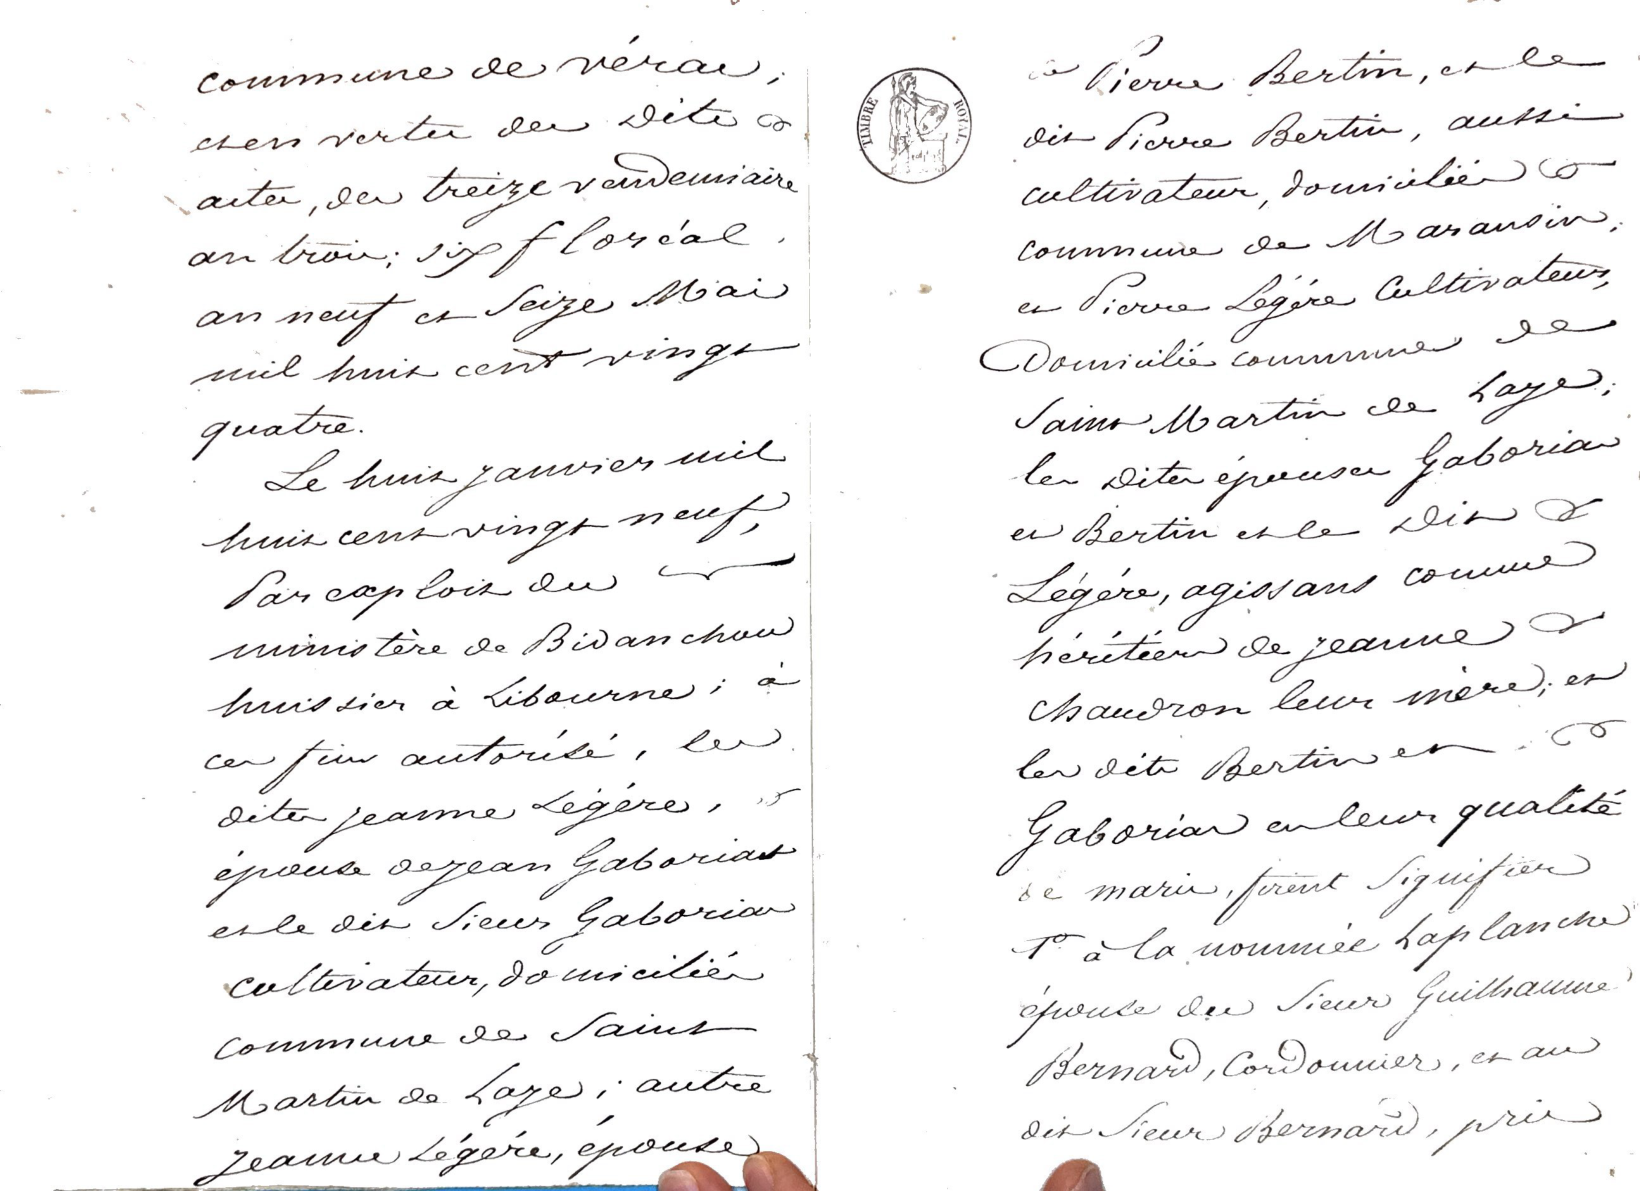 commune de vérac ;
et en vertu des dits
actes, des treize vendemiaire
an trois ; six floréal
an neuf et Seize Mai
mil huit cent vingt
quatre.
Le huit janvier mil
huit cent vingt neuf,
Par exploit du
ministère de Bidanchou
huissier à Libourne ; à
ces fins autorisé, les
dites jeanne Légére,
épouse de jean Gaboriat
et le dit Sieur Gaboriat
cultivateur, domiciliés
commune de Saint
Martin de Laye ; autre
jeanne Légére, épouse
TIMBRE ROYAL
de Pierre Bertin, et le
dit Pierre Bertin, aussi
cultivateur, domiciliés
commune de Maransin ;
et Pierre Légére Cultivateur,
Domicilié commune de
Saint Martin de Laye ;
les dites épouses Gaboriat
et Bertin et le dit
Légére, agissant comme
héritiers de jeanne
chaudron leur mère ; et
les dits Bertin et
Gaboriat en leur qualité
de maris, firent Signifier
1º à la nommée Laplanche
épouse du Sieur Guilhaume
Bernard, Cordonnier, et au
dit Sieur Bernard, pris